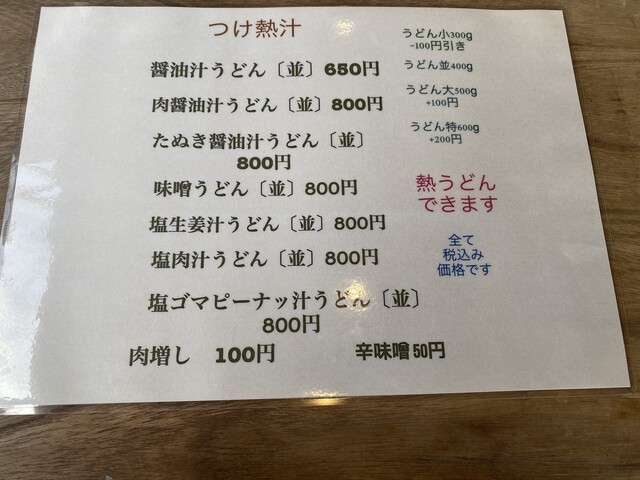 つけ熱汁
醤油汁うどん〔並〕650円
肉醤油汁うどん〔並〕800円
たぬき醤油汁うどん〔並〕
800円
味噌うどん〔並〕800円
塩生姜汁うどん〔並〕800円
塩肉汁うどん〔並〕800円
塩ゴマピーナッ汁うどん〔並〕
800円
肉増し 100円
辛味噌50円
うどん小300g
-100円引き
うどん並400g
うどん大500g
+100円
うどん特600g
+200円
熱うどん
できます
全て
税込み
価格です